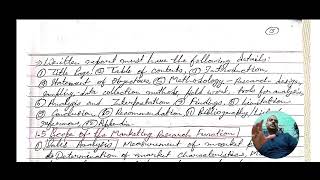 ③
⇒ Written report must have the following details:
① Title Page ② Table of contents, ③ Introduction
④ Statement of Objectives ⑤ Methodology - Research design,
sampling, data collection methods, field work, tools for analysis,
⑥ Analysis and Interpretation ⑦ Findings ⑧ Limitations
⑨ Conclusion ⑩ Recommendation ⑪ Bibliography / List
references, ⑫ Appendix
1.5 Scope of the Marketing Research Function
① Sales Analysis Measurement of market
Determination of market Characteristics,